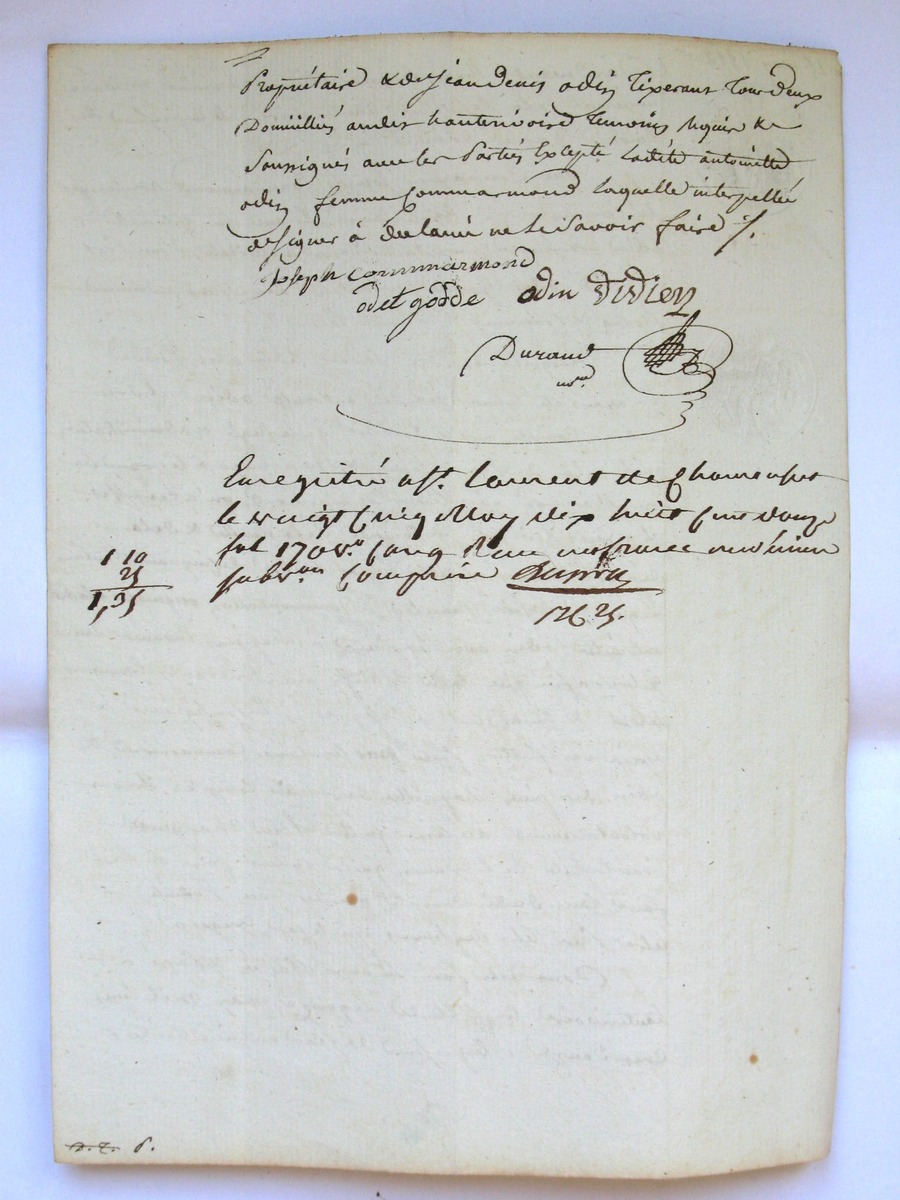 Propriétaire & de Jean Denis odin Tixerant tous deux
Domiciliés audit hauterivoire temoins requis &
Soussignés avec les Parties Excepté Ladite antoinette
odin femme Commarmond laquelle interpellée
de signer à declaré ne le savoir faire /.
Joseph Commarmond
odet gorde odin didier
Durand
nre
Enregistré a St. Laurent de Chamousset
le vingt Cinq May dix huit Cent douze
fol 170 v.o Cas Reçu un franc
subv.on Comprise
1 10
25
1,35
6.